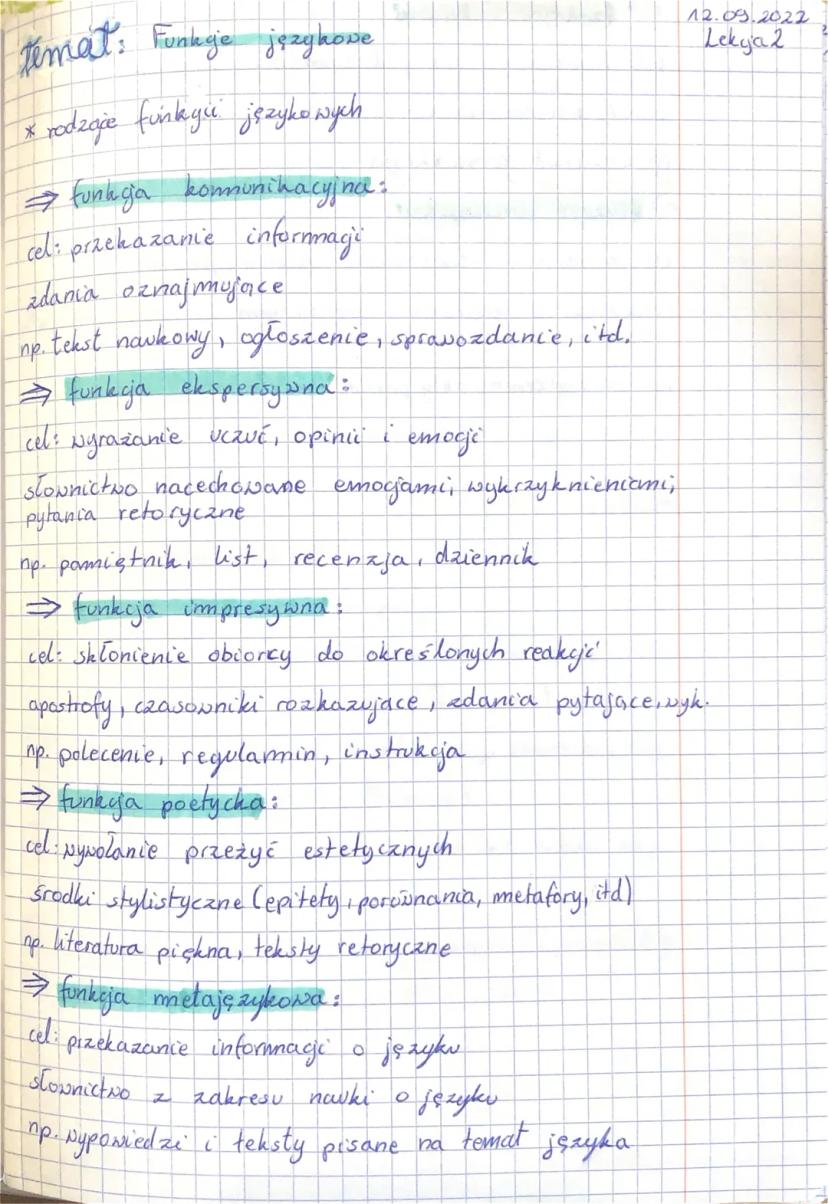 12.09.2022
Lekcja 2
temat: Funkcje językowe
* rodzaje funkcji językowych
⇒ funkcja komunikacyjna:
cel: przekazanie informacji
zdania oznajmujące
np. tekst naukowy, ogłoszenie, sprawozdanie, itd.
⇒ funkcja ekspersywna:
cel: wyrażanie uczuć, opinii i emocji
słownictwo nacechowane emocjami, wykrzyknieniami,
pytania retoryczne
np. pamiętnik, list, recenzja, dziennik
⇒ funkcja impresywna:
cel: skłonienie obiorcy do określonych reakcji
apostrofy, czasowniki rozkazujące, zdania pytające, wyk.
np. polecenie, regulamin, instrukcja
⇒ funkcja poetycka:
cel: wywołanie przeżyć estetycznych
środki stylistyczne (epitety, porównania, metafory, itd)
np. literatura piękna, teksty retoryczne
⇒ funkcja metajęzykowa:
cel: przekazanie informacji o języku
słownictwo z zakresu nauki o języku
np. wypowiedzi i teksty pisane na temat języka